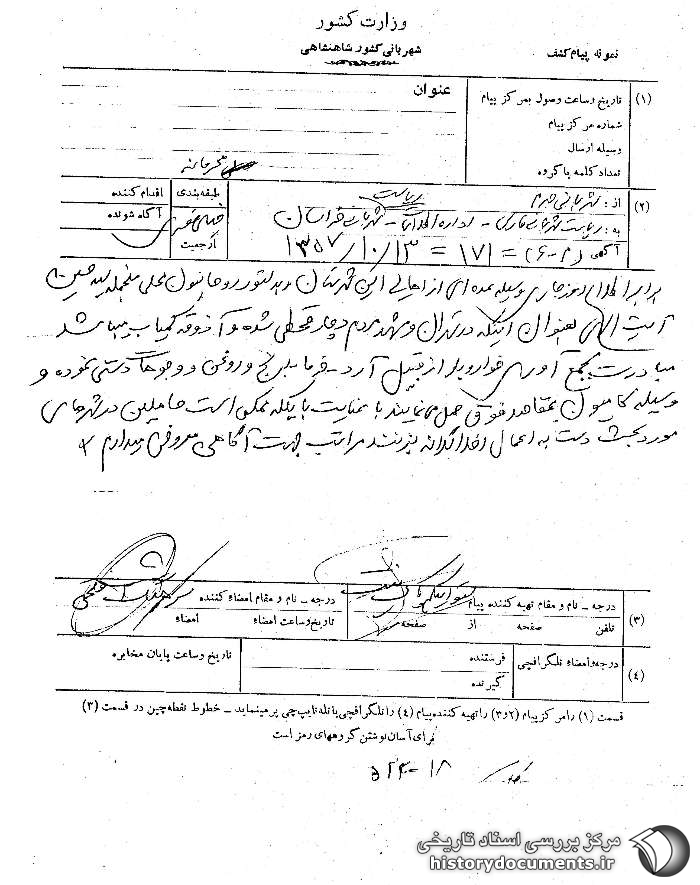 وزارت کشور
شهربانی کشور شاهنشاهی
نمونه پیام کشف
(۱) تاریخ وساعت وصول بمرکز پیام
شماره مرکز پیام
وسیله ارسال
تعداد کلمه یا گروه
عنوان
محرمانه
(۲) از : شهربانی جهرم
ریاست
به : ریاست شهربانی فارس - اداره اطلاعات - شهربانی خراسان
آگهی (م-۶) = ۱۷۱ = ۱۳۵۷/۱۰/۱۳
طبقه‌بندی
ارجحیت
اقدام کننده
آگاه شونده
برابر اطلاع روز جاری بوسیله عده‌ای از اهالی این شهرستان و بدستور روحانیون محلی منجمله سید حسین
آیت الهی بعنوان اینکه در تهران و مشهد مردم دچار قحطی شده و آذوقه کمیاب میباشد
مبادرت بجمع آوری خواروبار از قبیل آرد - خرما - برنج و روغن و وجوهات دستی نموده و
وسیله کامیون بمقاصد فوق حمل می‌نمایند با عنایت باینکه ممکن است حاملین در شهرهای
مورد بحث دست به اعمال اخلالگرانه بزنند مراتب جهت آگاهی معروض میدارم
(۳) درجه - نام و مقام تهیه کننده پیام
تلفن صفحه از صفحه
درجه - نام و مقام امضاء کننده
تاریخ وساعت امضاء امضاء
(۴) درجه وامضاء تلگرافچی
فرستنده
گیرنده
تاریخ وساعت پایان مخابره
قسمت (۱) رامرکز پیام (۲و۳) راتهیه کننده پیام (۴) راتلگرافچی یاتله تایپ‌چی پرمینماید - خطوط نقطه‌چین در قسمت (۲)
برای آسان نوشتن گروههای رمز است
۵۲۴-۱۸
مرکز بررسی اسناد تاریخی
historydocuments.ir